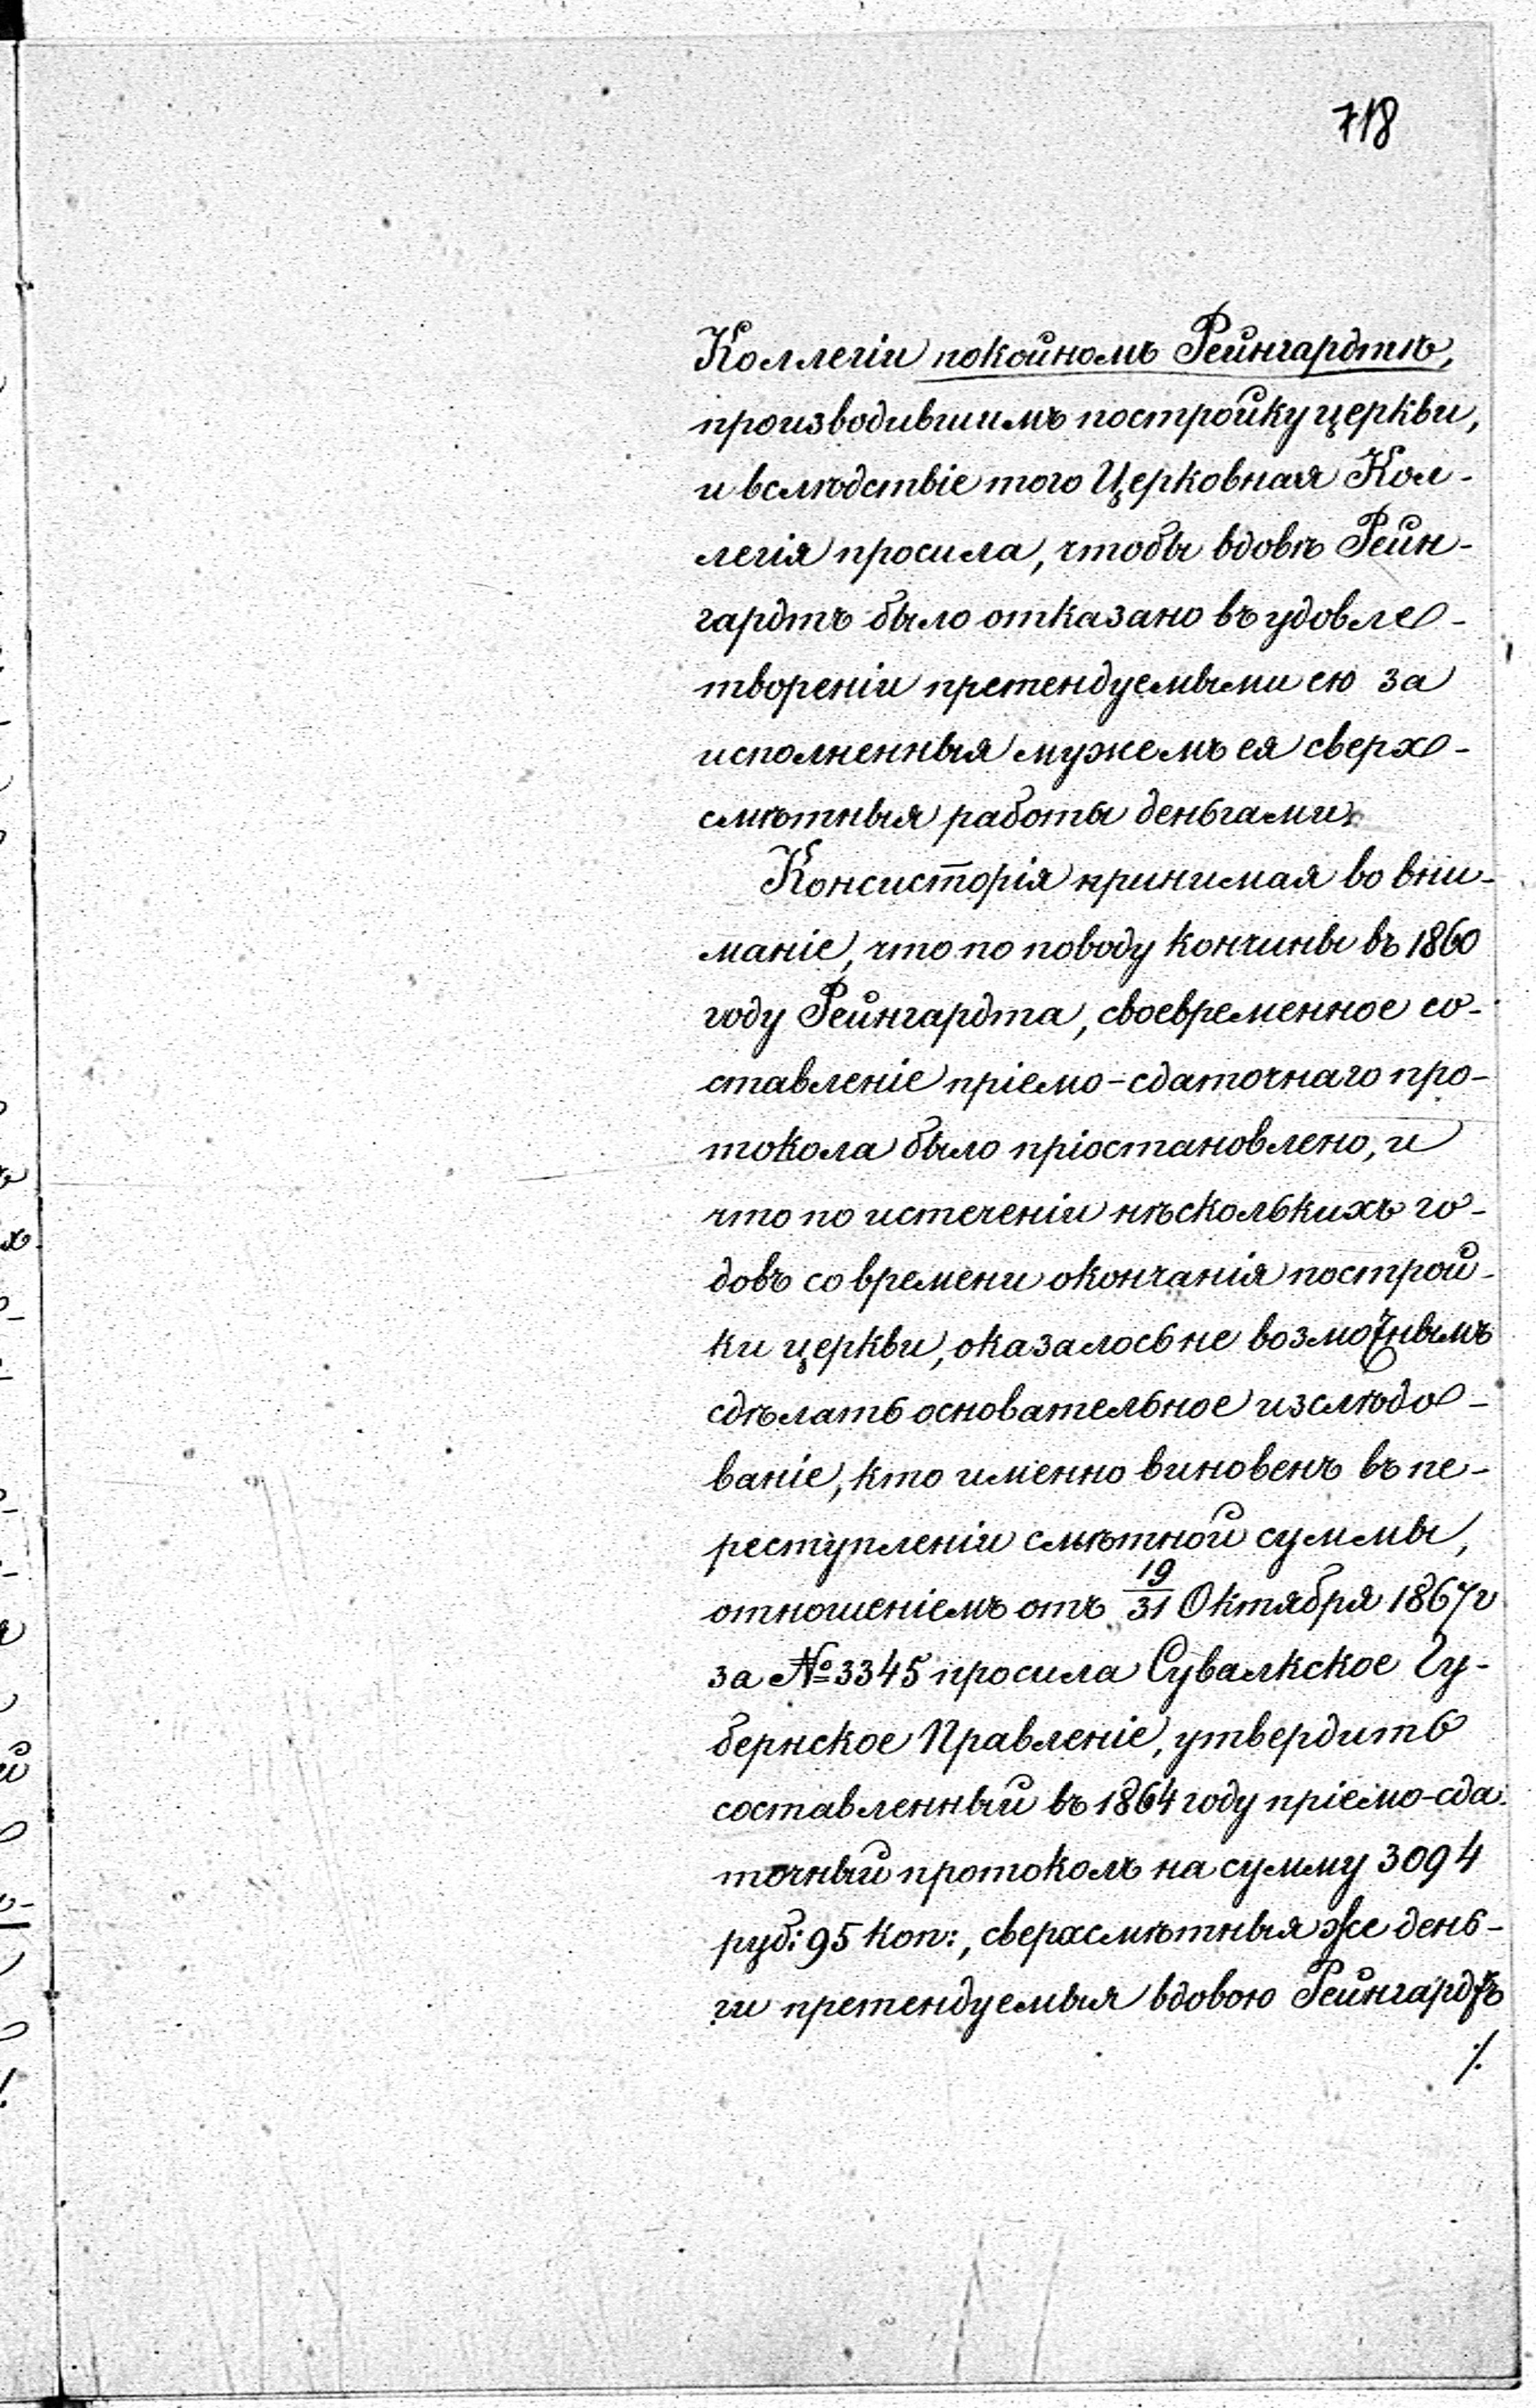 718
Коллегіи покойномъ Рейнгардтѣ,
производившимъ постройку церкви,
и вслѣдствіе того Церковная Кол-
легія просила, чтобы вдовѣ Рейн-
гардтъ было отказано въ удовле-
твореніи претендуемыми ею за
исполненныя мужемъ ея сверх-
смѣтныя работы деньгами.
Консисторія принимая во вни-
маніе, что по поводу кончины въ 1860
году Рейнгардта, своевременное со-
ставленіе пріемо-сдаточнаго про-
токола было пріостановлено, и
что по истеченіи нѣсколькихъ го-
довъ со времени окончанія построй-
ки церкви, оказалось не возможнымъ
сдѣлать основательное изслѣдо-
ваніе, кто именно виновенъ въ пе-
реступленіи смѣтной суммы,
отношеніемъ отъ 19/31 Октября 1867 г
за № 3345 просила Сувалкское Гу-
бернское Правленіе, утвердить
составленный въ 1864 году пріемо-сда-
точный протоколъ на сумму 3094
руб: 95 коп:, сверхсмѣтныя же день-
ги претендуемыя вдовою Рейнгардтъ
./.